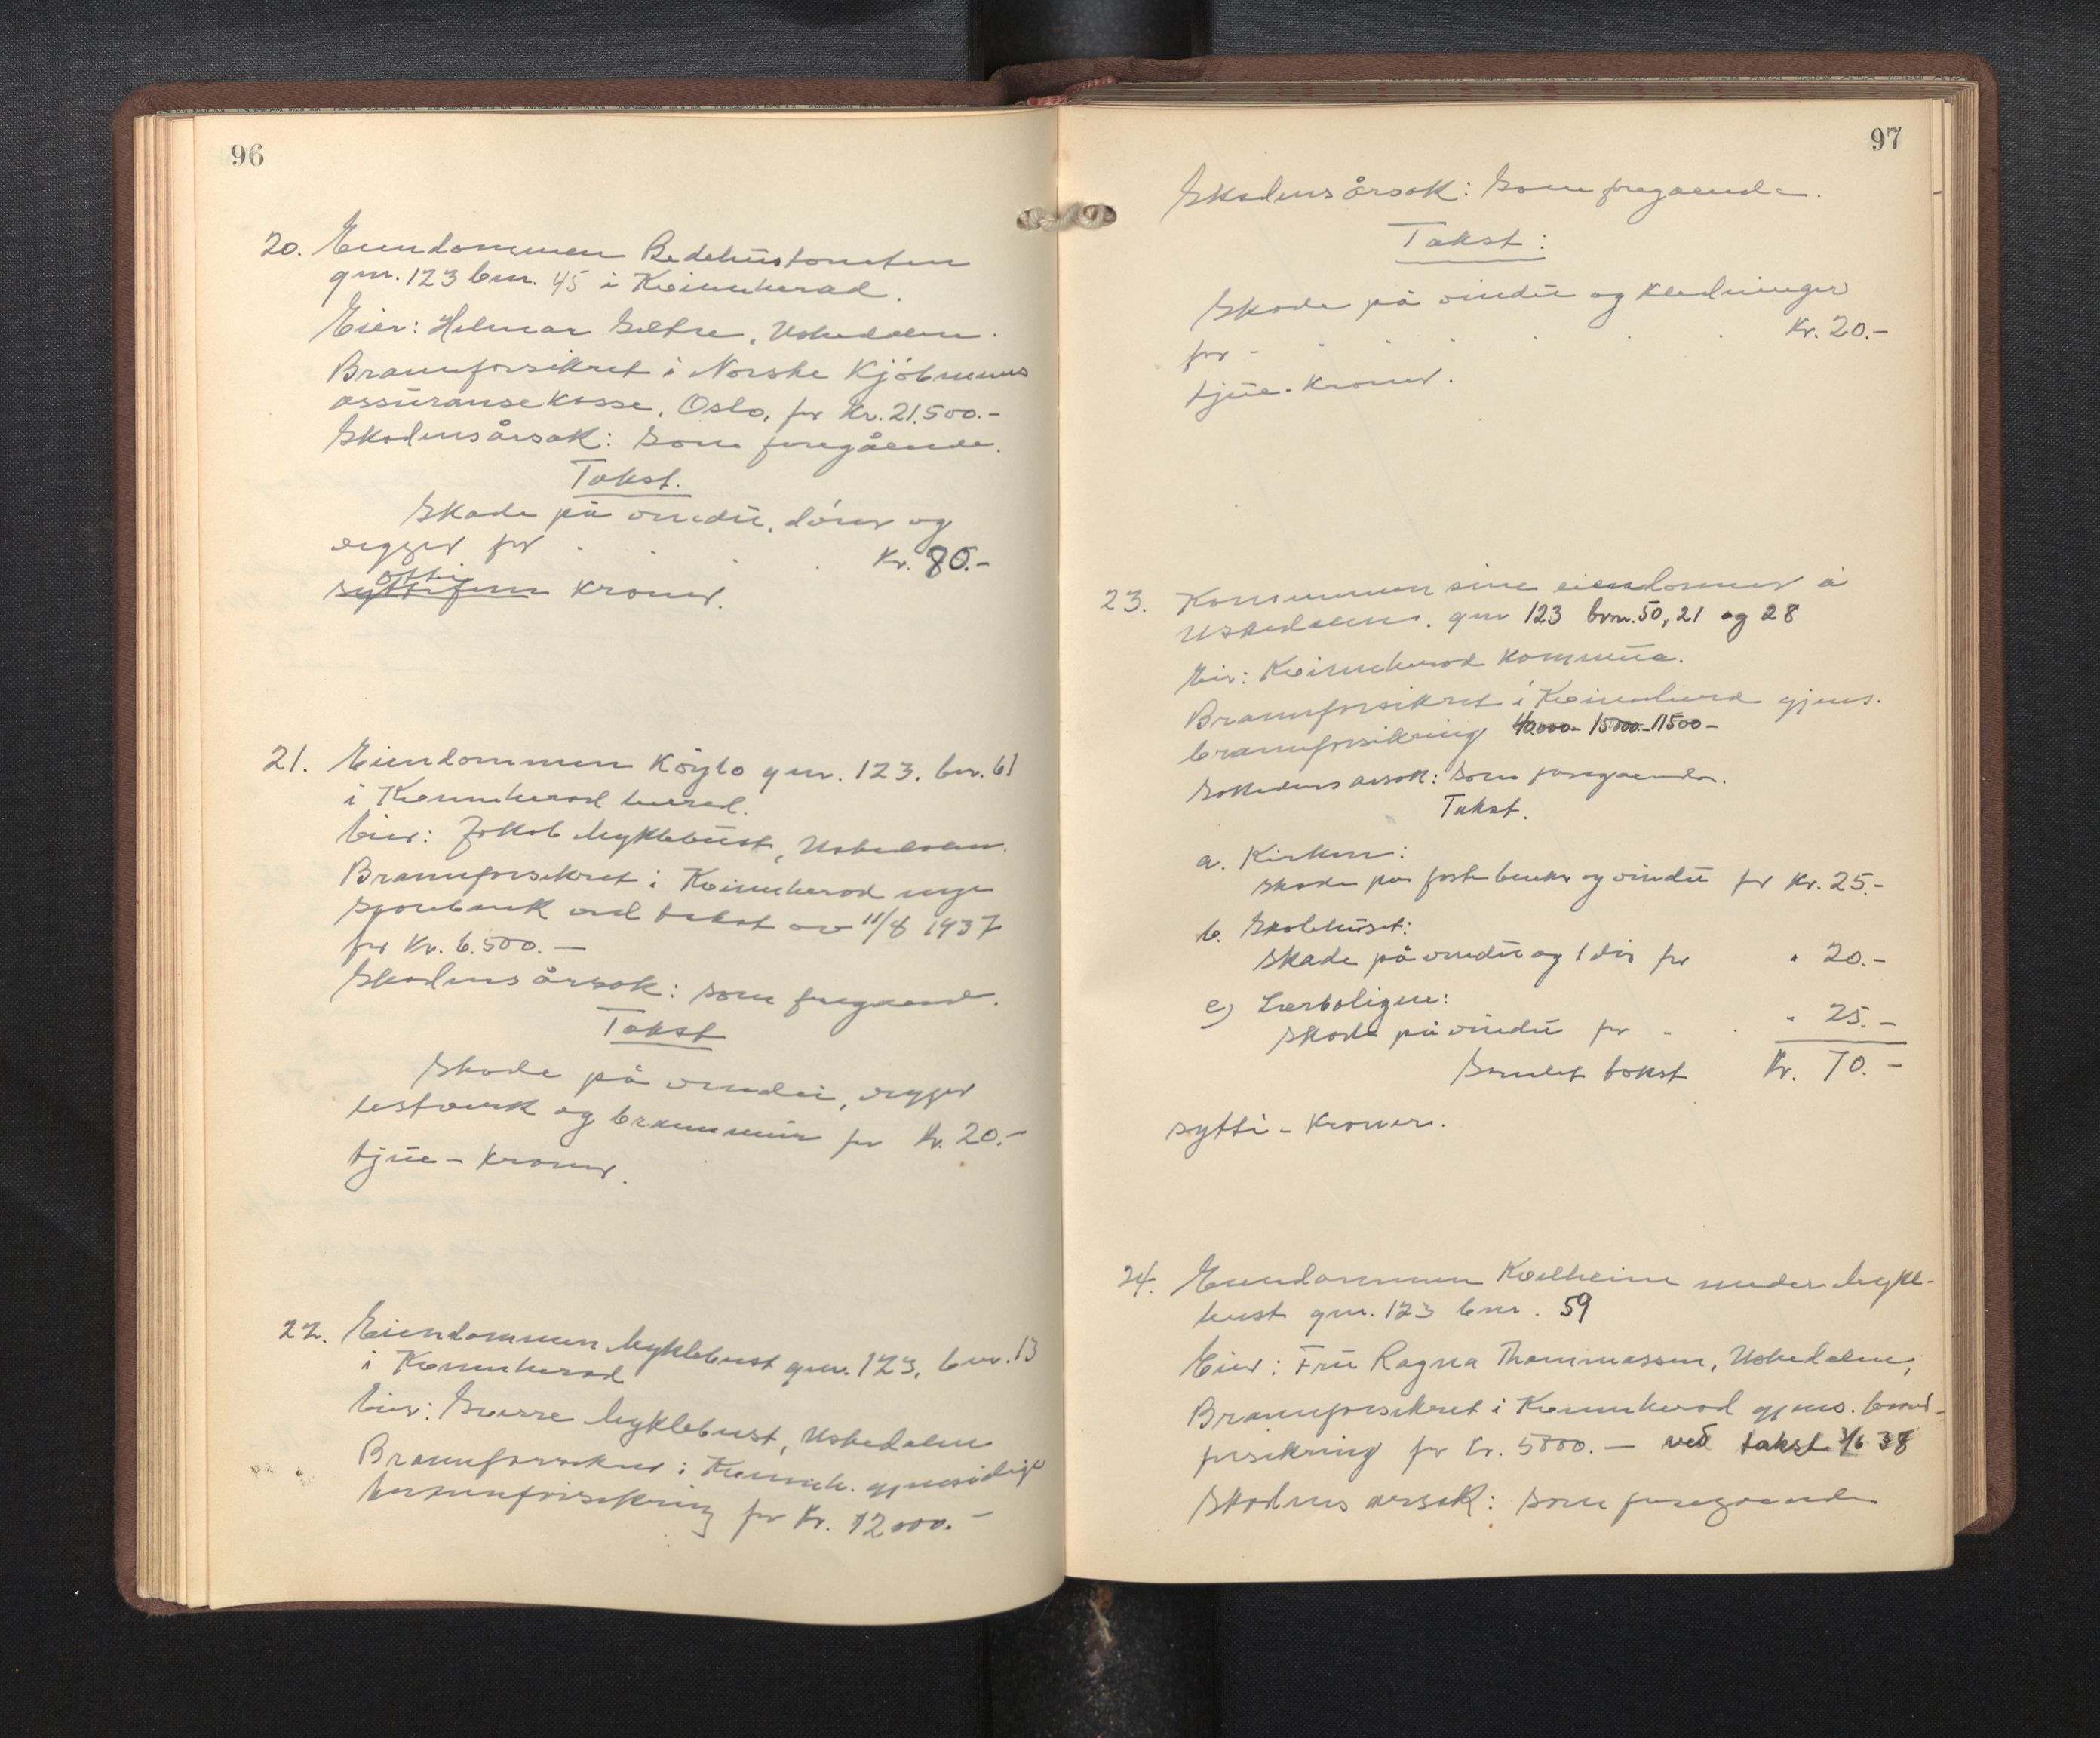 96
20. Eiendommen Bedehustomten
gnr. 123 bnr. 45 i Kvinnherad.
Eier: Helmar Sætre, Uskedalen.
Brannforsikret i Norske Kjøbmenns
assuransekasse, Oslo, for Kr. 21.500.-
Skadens årsak: Som foregående.
Takst.
Skade på vindu, dører og
vegger for . . . Kr. 80.-
åtti
syttifem kroner.
21. Eiendommen gnr. 123, bnr. 61
i Kvinnherad herad.
Eier: Jakob Myklebust, Uskedalen.
Brannforsikret i Kvinnherad nye
Sparebank ved takst av 11/8 1937
for Kr. 6.500.-
Skadens årsak: Som foregående.
Takst
Skade på vindu, vegger
listverk og brannmur for Kr. 20.-
tjue - kroner.
22. Eiendommen Myklebust gnr. 123, bnr. 13
i Kvinnherad
Eier: Sverre Myklebust, Uskedalen
Brannforsikret i Kvinnh. gjensidige
brannforsikring for Kr. 12000.-
97
Skadens årsak: Som foregaende.
Takst:
Skade på vindu og kledninger
for - - - . . . Kr. 20.-
tjue - kroner.
23. Kommunen sine eiendomer i
Uskedalen. gnr 123 brn. 50, 21 og 28
Eier: Kvinnherad kommune.
Brannforsikret i Kvinnherad gjens.
brannforsikring 40.000- 15000- 11500-
Skadens arsak: Som foregaende.
Takst.
a. Kirken:
skade på benker og vindu for Kr. 25.-
b. Skolehuset:
Skade på vindu og 1 dør for " 20.-
c) Lærboligen:
Skade på vindu for - . " 25.-
Samlet takst Kr. 70.-
sytti - Kroner.
24. Eiendommen Kvelheim under Mykle-
bust gnr. 123 bnr. 59
Eier: Fru Ragna Thommassen, Uskedalen,
Brannforsikret i Kvinnherad gjens. brand-
forsikring for Kr. 5800.- ved takst 3/6 38
Skadens arsak: Som foregaende